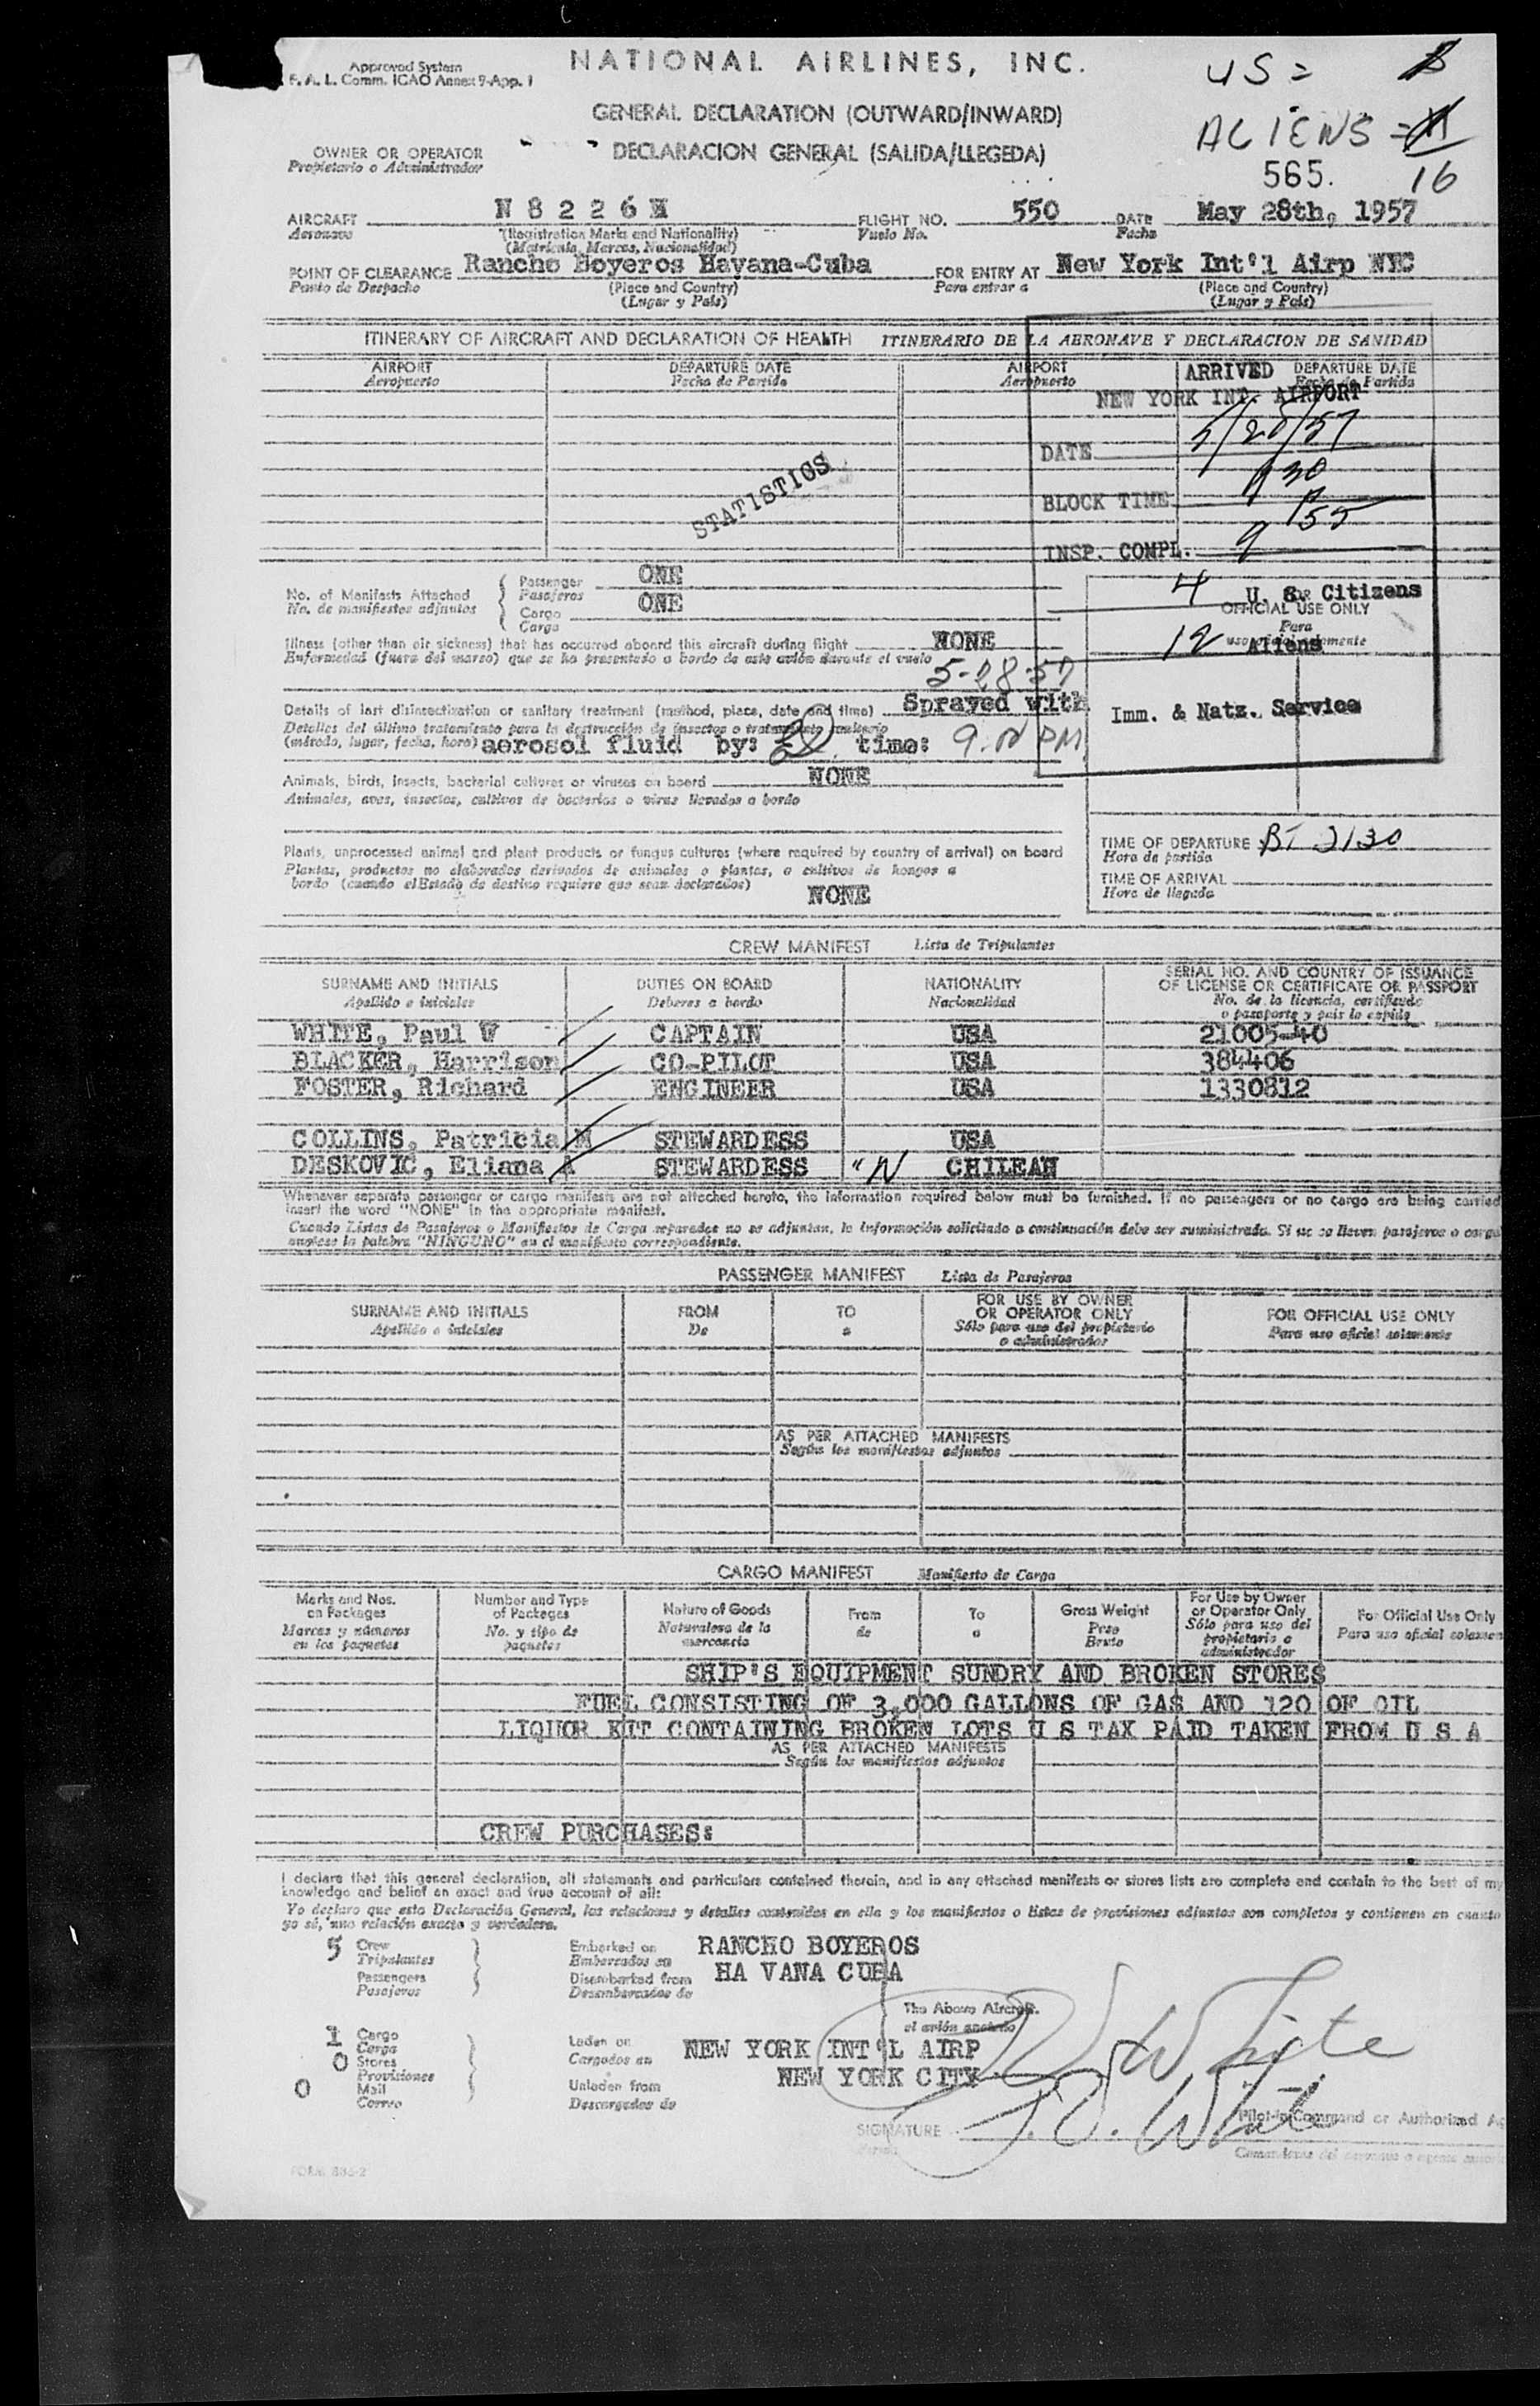 Approved System
F. A. L. Comm. ICAO Annex 9-App. 1
NATIONAL AIRLINES, INC.
US =
GENERAL DECLARATION (OUTWARD/INWARD)
ALIENS =
OWNER OR OPERATOR
DECLARACION GENERAL (SALIDA/LLEGEDA)
Propietario o Administrador
565.
16
AIRCRAFT N 8 2 2 6 H FLIGHT NO. 550 DATE May 28th, 1957
Aeronave (Registration Marks and Nationality) Vuelo No. Fecha
(Matricula, Marcas, Nacionalidad)
POINT OF CLEARANCE Rancho Boyeros Havana-Cuba FOR ENTRY AT New York Int'l Airp NYC
Punto de Despacho (Place and Country) Para entrar a (Place and Country)
(Lugar y País) (Lugar y País)
ITINERARY OF AIRCRAFT AND DECLARATION OF HEALTH ITINERARIO DE LA AERONAVE Y DECLARACION DE SANIDAD
AIRPORT DEPARTURE DATE AIRPORT DEPARTURE DATE
Aeropuerto Fecha de Partida Aeropuerto Fecha de Partida
ARRIVED
NEW YORK INT. AIRPORT
DATE 5/28/57
STATISTICS
BLOCK TIME
INSP. COMPL. 9 55
4 U. S. Citizens
12 Aliens
Imm. & Natz. Service
No. of Manifests Attached Passenger ONE
No. de manifiestos adjuntos Pasajeros
Cargo ONE
Carga
FOR OFFICIAL USE ONLY
Para uso oficial solamente
Illness (other than air sickness) that has occurred aboard this aircraft during flight NONE
Enfermedad (fuera del mareo) que se ha presentado a bordo de este avión durante el vuelo
5-28-57
Details of last disinsectization or sanitary treatment (method, place, date and time) Sprayed with
Detalles del último tratamiento para la destrucción de insectos o tratamiento sanitario
(método, lugar, fecha, hora) aerosol fluid by: time: 9.00 PM
Animals, birds, insects, bacterial cultures or viruses on board NONE
Animales, aves, insectos, cultivos de bacterias o virus llevados a bordo
Plants, unprocessed animal and plant products or fungus cultures (where required by country of arrival) on board
Plantas, productos no elaborados derivados de animales o plantas, o cultivos de hongos a
bordo (cuando el Estado de destino requiere que sean declarados) NONE
TIME OF DEPARTURE BT 2130
Hora de partida
TIME OF ARRIVAL
Hora de llegada
CREW MANIFEST Lista de Tripulantes
SURNAME AND INITIALS DUTIES ON BOARD NATIONALITY SERIAL NO. AND COUNTRY OF ISSUANCE
OF LICENSE OR CERTIFICATE OR PASSPORT
Apellido e iniciales Deberes a bordo Nacionalidad No. de la licencia, certificado
o pasaporte y pais lo expide
WHITE, Paul W CAPTAIN USA 21005-40
BLACKER, Harrison CO-PILOT USA 384406
FOSTER, Richard ENGINEER USA 1330812
COLLINS, Patricia M STEWARDESS USA
DESKOVIC, Eliana A STEWARDESS CHILEAN
Whenever separate passenger or cargo manifests are not attached hereto, the information required below must be furnished. If no passengers or no cargo are being carried
insert the word "NONE" in the appropriate manifest.
Cuando Listas de Pasajeros o Manifiestos de Carga separados no se adjuntan, la información solicitada a continuación debe ser suministrada. Si no se lleven pasajeros o carga
anotese la palabra "NINGUNO" en el manifiesto correspondiente.
PASSENGER MANIFEST Lista de Pasajeros
SURNAME AND INITIALS FROM TO FOR USE BY OWNER
OR OPERATOR ONLY FOR OFFICIAL USE ONLY
Apellido e iniciales De a Sólo para uso del propietario
o administrador Para uso oficial solamente
AS PER ATTACHED MANIFESTS
Según los manifiestos adjuntos
CARGO MANIFEST Manifiesto de Carga
Marks and Nos.
on Packages
Marcas y números
en los paquetes
Number and Type
of Packages
No. y tipo de
paquetes
Nature of Goods
Naturalesa de la
mercancia
From
de
To
a
Gross Weight
Peso
Bruto
For Use by Owner
or Operator Only
Sólo para uso del
propietario o
administrador
For Official Use Only
Para uso oficial
SHIP'S EQUIPMENT SUNDRY AND BROKEN STORES
FUEL CONSISTING OF 3,000 GALLONS OF GAS AND 120 OF OIL
LIQUOR KIT CONTAINING BROKEN LOTS U S TAX PAID TAKEN FROM U S A
AS PER ATTACHED MANIFESTS
Según los manifiestos adjuntos
CREW PURCHASES:
I declare that this general declaration, all statements and particulars contained therein, and in any attached manifests or stores lists are complete and contain to the best of my
knowledge and belief an exact and true account of all:
Yo declaro que esta Declaración General, las relaciones y detalles contenidos en ella y los manifiestos o listas de provisiones adjuntos son completos y contienen en cuanto
yo sé, una relación exacta y verdadera.
5 Crew
Tripulantes
Passengers
Pasajeros
Embarked on RANCHO BOYEROS
Embarcados en
Disembarked from HA VANA CUBA
Desembarcados de
The Above Aircraft.
el avión
1 Cargo
Carga
0 Stores
Provisiones
0 Mail
Correo
Laden on NEW YORK INT'L AIRP
Cargados en
NEW YORK CITY
Unladen from
Descargados de
SIGNATURE
Pilot-in-Command or Authorized
FORM 886-2